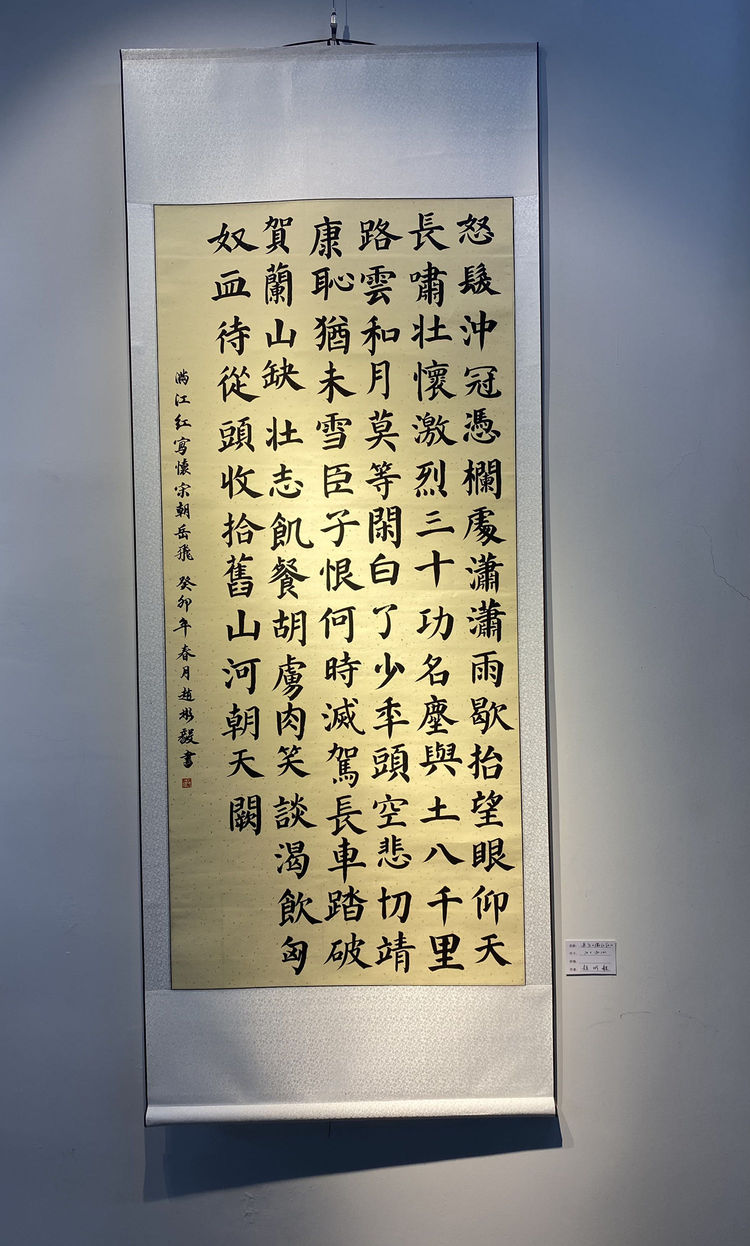 怒髮沖冠憑欄處瀟瀟雨歇抬望眼仰天
長嘯壯懷激烈三十功名塵與土八千里
路雲和月莫等閑白了少年頭空悲切靖
康恥猶未雪臣子恨何時滅駕長車踏破
賀蘭山缺 壯志飢餐胡虜肉笑談渴飲匈
奴血待從頭收拾舊山河朝天闕
滿江紅寫懷宋朝岳飛 癸卯年春月趙彬毅書